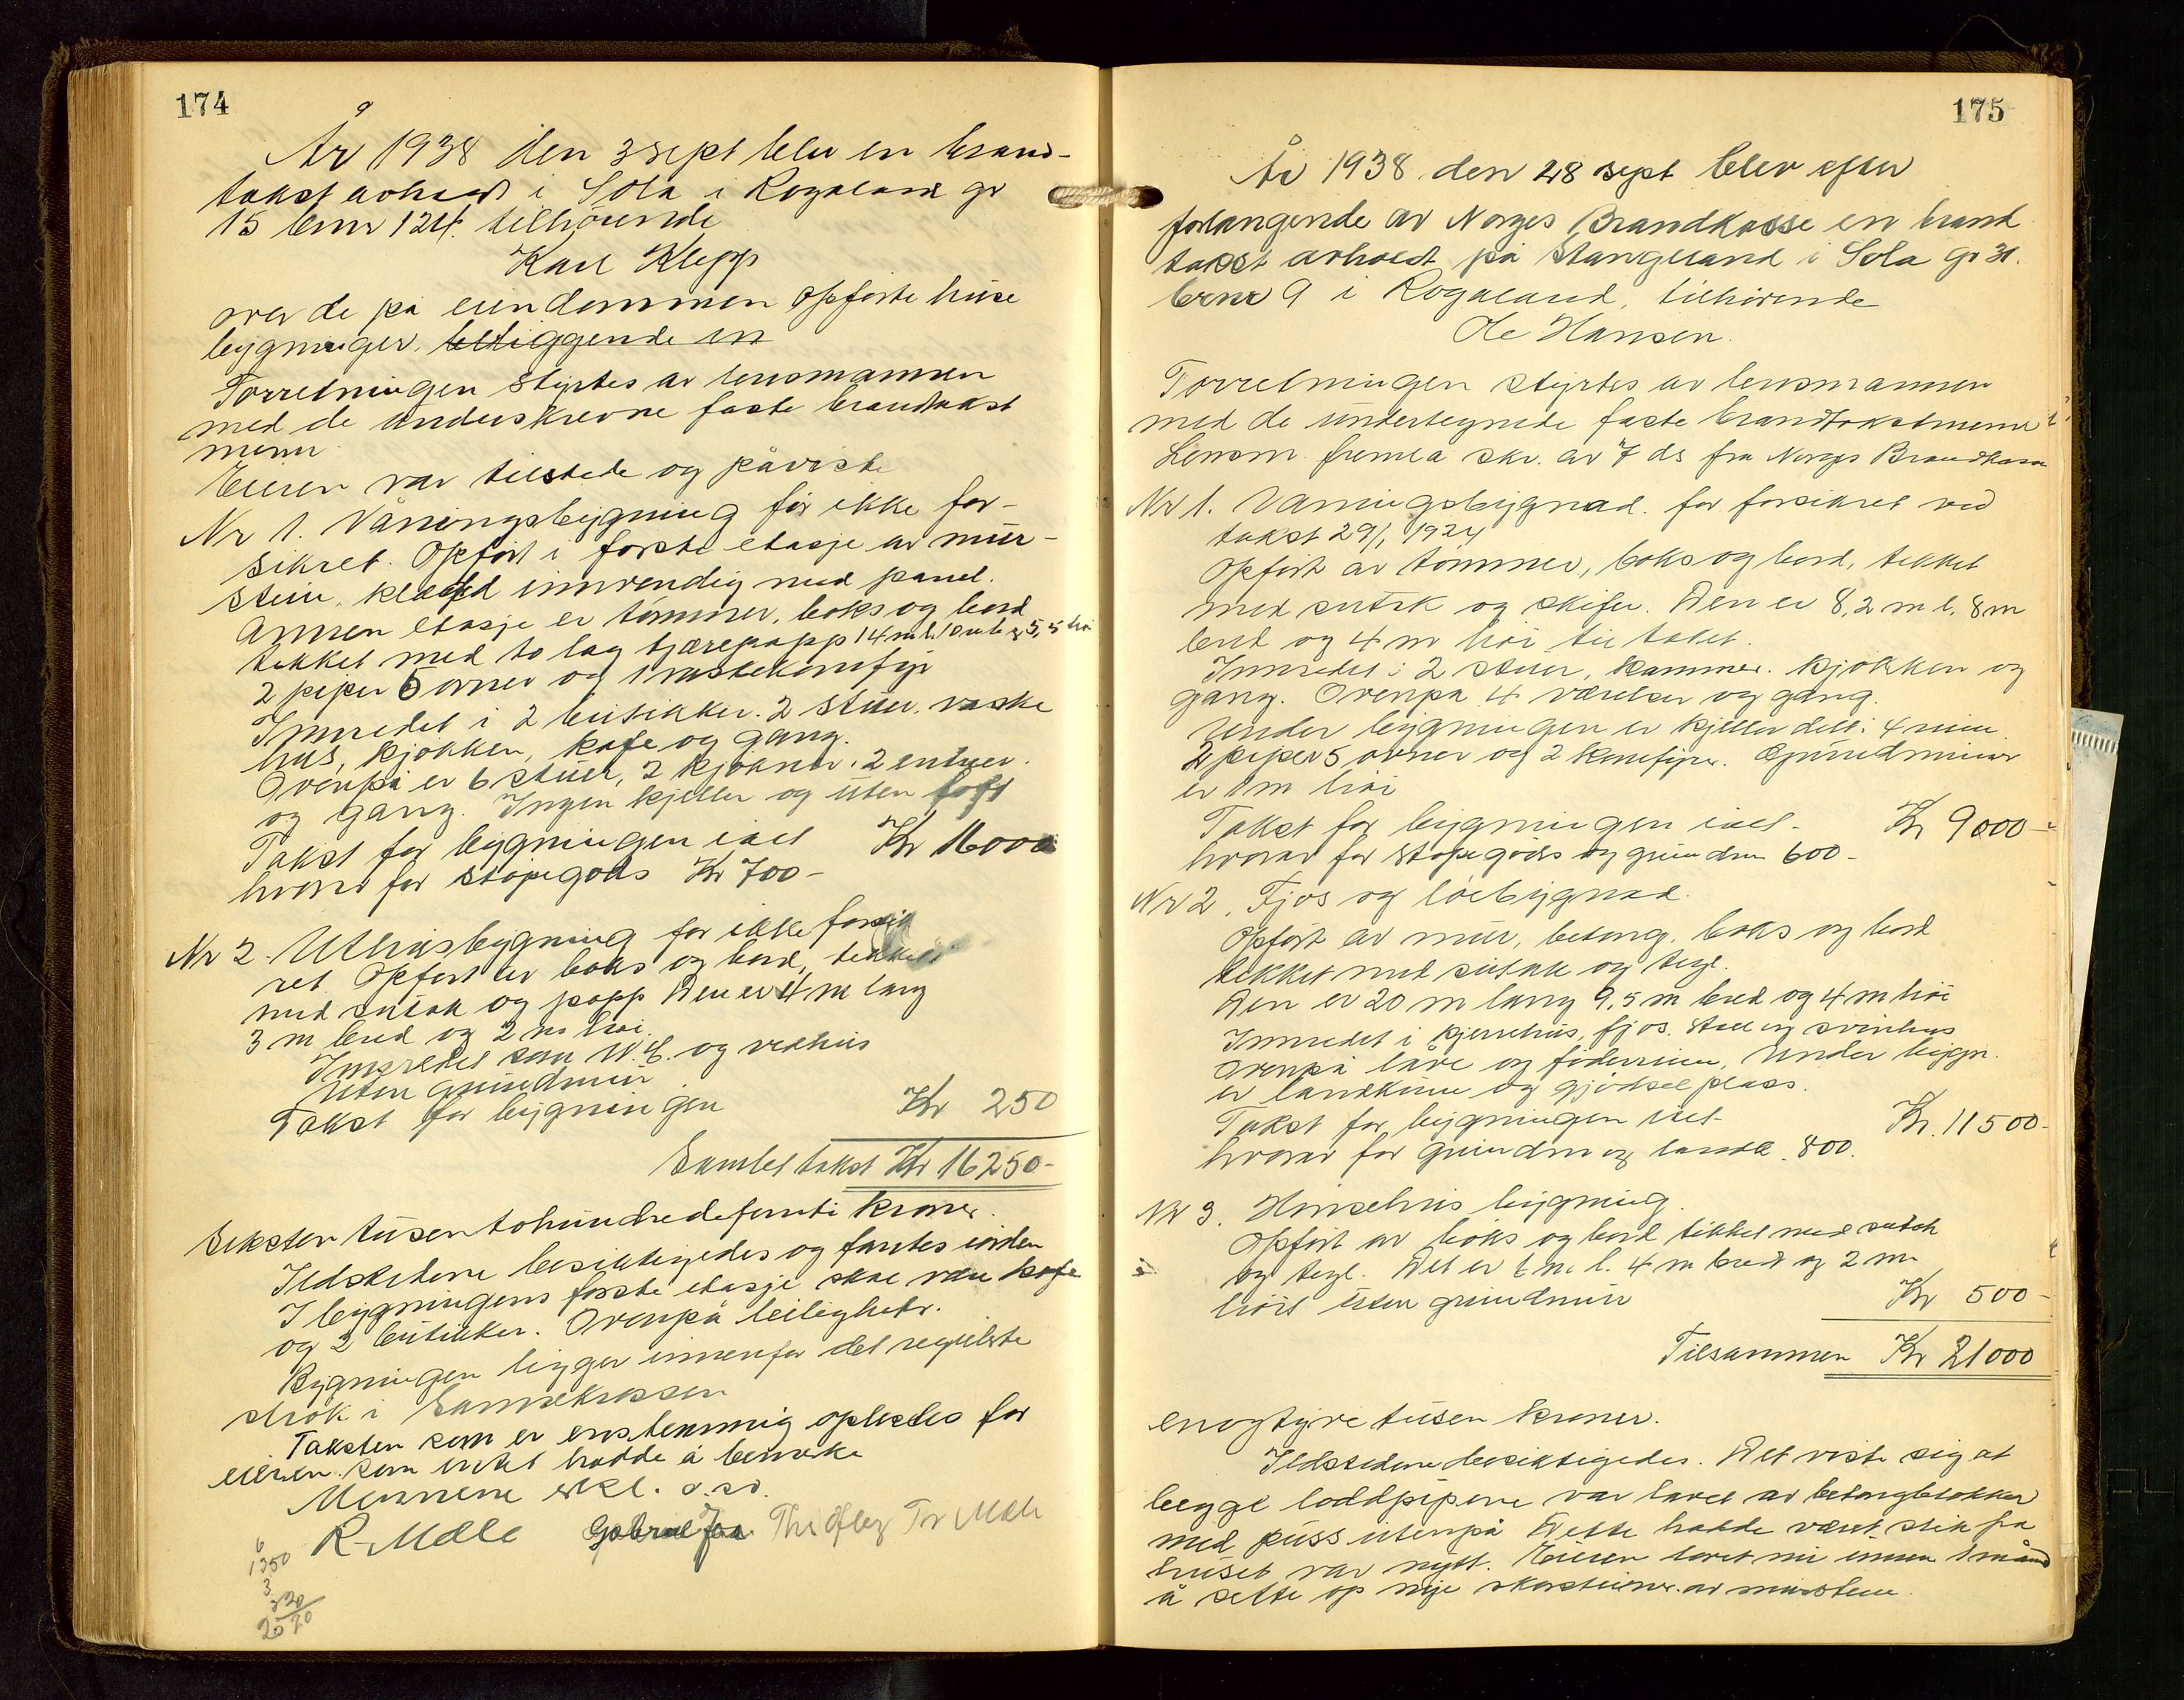 174
År 1938 den 3 sept blev en brand-
takst avholdt i Sola i Rogaland gr
15 bnr 124. tilhörende
Karl Klepp
over de på eiendommen opförte huse
bygninger. beliggende in
Forretningen styrtes av lensmannen
med de underskrevne faste brandtakst
menn.
Eieren var tilstede og påviste
Nr 1. Våningsbygning för ikke for-
sikret. Opfört i förste etasje av mur-
stein, klædd innvendig med panel.
Annen etasje er tömmer, boks og bord
tekket med to lag tjærepapp 14 m l. 10 m b og 5,5 høi
2 piper 6 ovner og 1 vaskekomfyr
Innredet i 2 butikker. 2 stuer. vaske
hus, kjökken, kafe og gang.
Ovenpå er 6 stuer, 2 kjökner. 2 entreer.
og gang. Ingen kjeller og uten loft
Takst for bygningen ialt Kr 16000
hvorav for stöpegods Kr 700-
Nr 2. Uthusbygning før ikke forsik
ret. Opfört av boks og bord, tekket
med sutak og papp Den er 4 m lang
3 m bred og 2 m høi.
Innredet som W.C. og vedhus
Uten grundmur.
Takst for bygningen Kr 250
Samlet takst Kr 16250-
Seksten tusen tohundredefemti kroner.
Ildstedene besiktigedes og fantes iorden
I bygningens förste etasje skal være kafe
og 2 butikker. Ovenpå leiligheter.
Bygningen ligger innenfor det regulerte
strök i Sannekrossen
Taksten som er enstemmig oplestes for
eieren som intet hadde å bemerke
Mennene erkl. o.s.v.
R. Melle Gabriel Joa Th. Tr Melle
6
1350
3
320
20 20
175
År 1938 den 28 sept blev efter
forlangende av Norges Brandkasse en brand
takst avholdt på Stangeland i Sola gr 31.
brnr 9 i Rogaland, tilhörende
Ole Hansen.
Forretningen styrtes av lensmannen
med de undertegnede faste brandtakstmenn
Lensm. fremla skr. av 7 ds fra Norges Brandkasse
Nr 1. Vaningsbygnad. før forsikret ved
takst 29/1 1924
Opfört av tömmer, boks og bord, tekket
med sutak og skifer. Den er 8,2 m l. 8 m
bred og 4 m höi til taket.
Innredet i 2 stuer, kammer. kjökken og
gang. Ovenpå 4 værelser og gang.
Under bygningen er kjeller delt i 4 rum
2 piper 5 ovner og 2 komfyrer. Grundmuren
er 1 m höi
Takst for bygningen ialt- Kr 9000-
hvorav for stöpegods og grundm 600-
Nr 2. Fjos og löebygnad.
Opfört av mur, betong. boks og bord
tekket med sutak og tegl.
Den er 20 m lang 9,5 m bred og 4 m höi
Innredet i kjerrehus, fjos. stall og svinhus
Ovenpå låve og foderrum. Under bygn.
er landkum og gjödselplass.
Takst for bygningen ialt- Kr. 11500-
hvorav for grundm og landk. 800.
Nr 3. Hönsehus bygning.
Opfört av boks og bord tekket med sutak
og tegl. Det er 6 m l. 4 m bredt og 2 m
höit uten grundmur Kr 500-
Tilsammen Kr 21000
enogtyve tusen kroner.
Ildstedene besiktigedes. Det viste sig at
begge loddpipene var laget av betongblokker
med puss utenpå Dette hadde været slik fra
huset var nytt. Eieren lovet nu innen 1 måned
å sette op nye skorsteiner av murstein